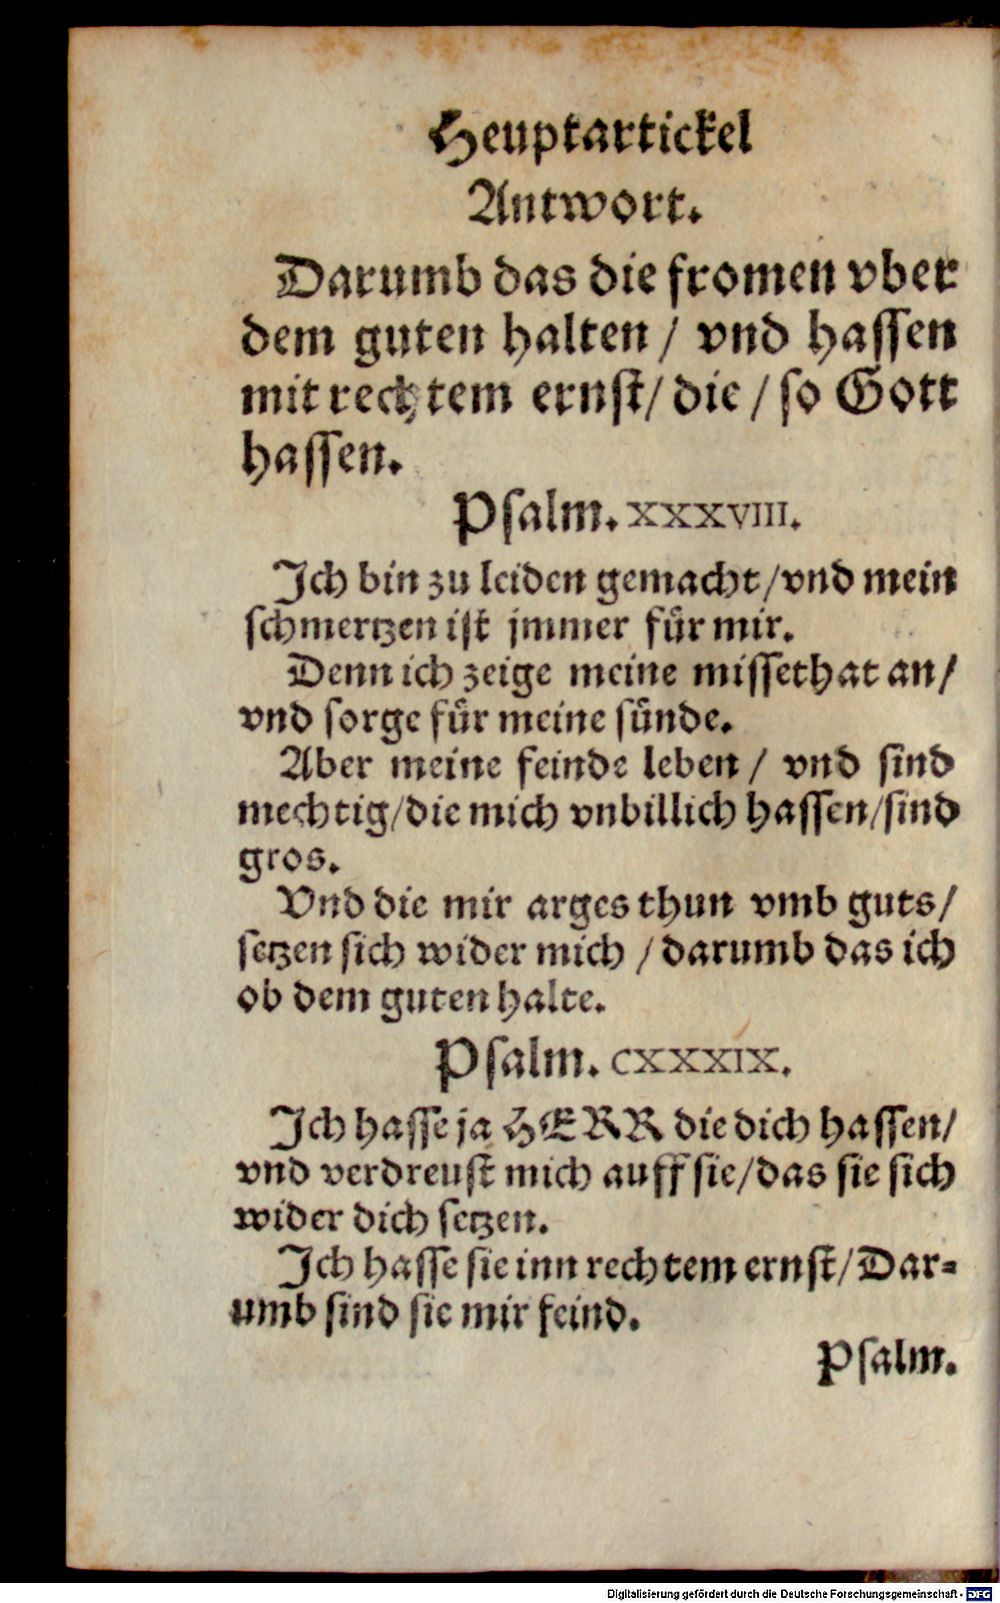 Heuptartickel
Antwort.
Darumb das die fromen vber
dem guten halten / vnd hassen
mit rechtem ernst/ die / so Gott
hassen.
Psalm. XXXVIII.
Ich bin zu leiden gemacht/vnd mein
schmertzen ist jmmer für mir.
Denn ich zeige meine missethat an/
vnd sorge für meine sünde.
Aber meine feinde leben / vnd sind
mechtig/die mich vnbillich hassen/sind
gros.
Vnd die mir arges thun vmb guts/
setzen sich wider mich / darumb das ich
ob dem guten halte.
Psalm. CXXXIX.
Ich hasse ja HERR die dich hassen/
vnd verdreust mich auff sie/das sie sich
wider dich setzen.
Ich hasse sie inn rechtem ernst/Dar=
umb sind sie mir feind.
Psalm.
Digitalisierung gefördert durch die Deutsche Forschungsgemeinschaft - DFG